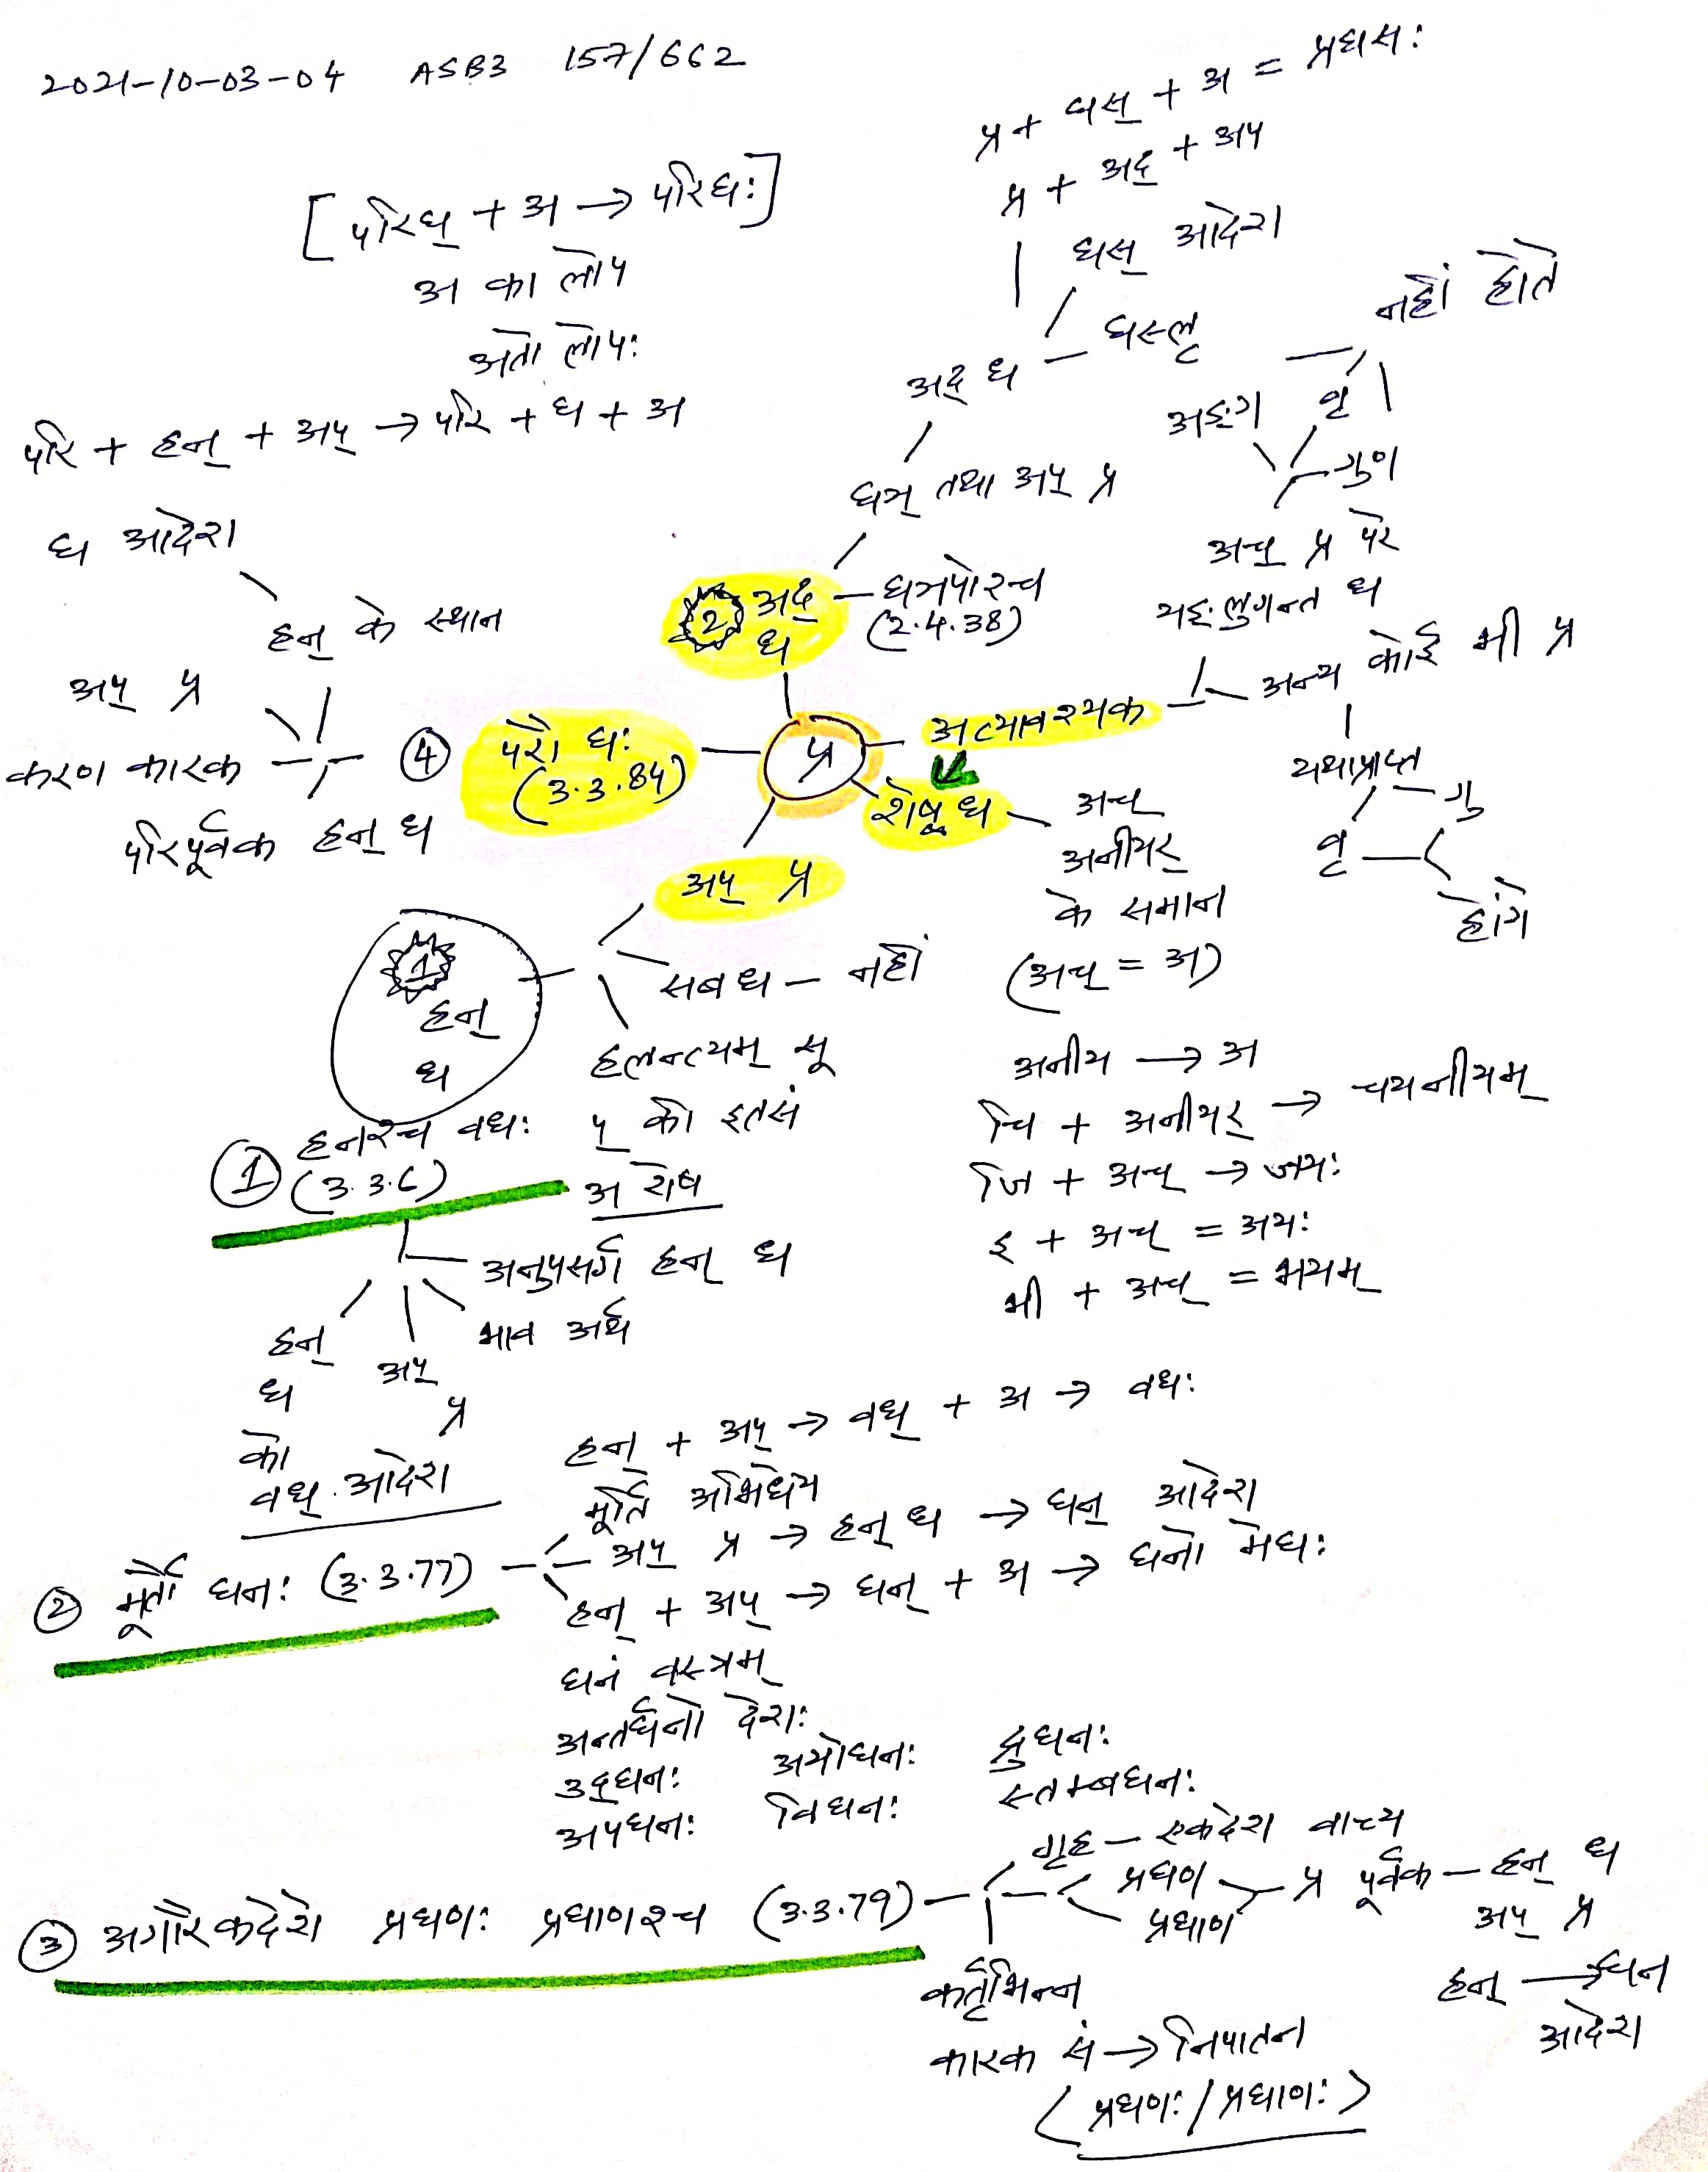 2021-10-03-04 ASB3 157/662
प्र + घस् + अ = प्रघसः
प्र + अद् + अप
घस् आदेश
घस्लृ
अद् ध
घञ् तथा अप् प्र
[परिघ् + अ → परिघः]
अ का लोप
अतो लोपः
परि + हन् + अप् → परि + घ + अ
घ आदेश
हन् के स्थान
अप् प्र
करण कारक
परिपूर्वक हन् ध
④ परौ घः
(3.3.84)
2 अद् ध
घञपोश्च
(2.4.38)
प्र
नहीं होते
अङ्ग
वृ
गुण
अच् प्र परे
यङ्लुगन्त ध
अत्यावश्यक
अन्य कोई भी प्र
यथाप्राप्त
गु
वृ
होंगे
शेष ध
अच्
अनीयर्
के समान
(अच् = अ)
अप् प्र
सब ध – नहीं
हलन्त्यम् सू
प् की इत्सं
अ शेष
1
हन्
ध
① हनश्च वधः
(3.3.6)
अनुपसर्ग हन् ध
भाव अर्थ
अप्
प्र
हन्
ध
को
वध् आदेश
अनीय → अ
चि + अनीयर् → चयनीयम्
जि + अच् → जयः
इ + अच् = अयः
भी + अच् = भयम्
हन् + अप् → वध् + अ → वधः
② मूर्तौ घनः (3.3.77)
मूर्ति अभिधेय
अप् प्र → हन् ध → घन् आदेश
हन् + अप् → घन् + अ → घनो मेघः
घनं वस्त्रम्
अन्तर्घनो देशः
उद्घनः अयोघनः द्रुघनः
अपघनः विघनः स्तम्बघनः
③ अगारैकदेशे प्रघणः प्रघाणश्च (3.3.79)
गृह – एकदेश वाच्य
प्रघण
प्रघाण
प्र पूर्वक – हन् ध
अप् प्र
हन् → घन
आदेश
कर्तृभिन्न
कारक सं → निपातन
(प्रघणः / प्रघाणः)